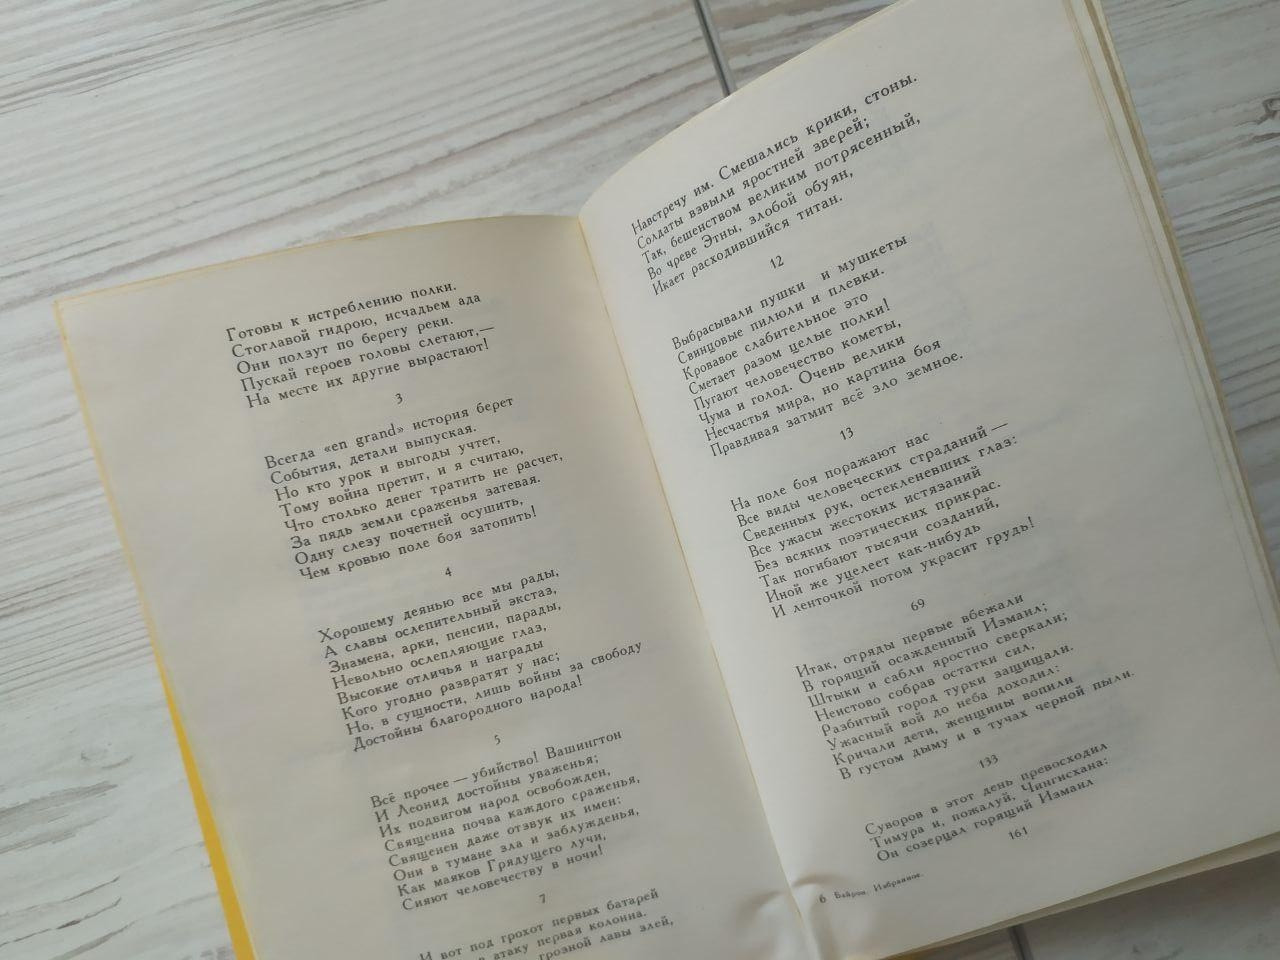 Готовы к истреблению полки.
Стоглавой гидрою, исчадьем ада
Они ползут по берегу реки.
Пускай героев головы слетают,—
На месте их другие вырастают!
3
Всегда «en grand» история берет
События, детали выпуская.
Но кто урок и выгоды учтет,
Тому война претит, и я считаю,
Что столько денег тратить не расчет,
За пядь земли сраженья затевая.
Одну слезу почетней осушить,
Чем кровью поле боя затопить!
4
Хорошему деянью все мы рады,
А славы ослепительный экстаз,
Знамена, арки, пенсии, парады,
Невольно ослепляющие глаз,
Высокие отличья и награды
Кого угодно развратят у нас;
Но, в сущности, лишь войны за свободу
Достойны благородного народа!
5
Всё прочее — убийство! Вашингтон
И Леонид достойны уваженья;
Их подвигом народ освобожден,
Священна почва каждого сраженья,
Священен даже отзвук их имен:
Они в тумане зла и заблужденья,
Как маяков Грядущего лучи,
Сияют человечеству в ночи!
7
И вот под грохот первых батарей
в атаку первая колонна.
грозной лавы злей,
Навстречу им. Смешались крики, стоны.
Солдаты взвыли яростней зверей;
Так, бешенством великим потрясенный,
Во чреве Этны, злобой обуян,
Икает расходившийся титан.
12
Выбрасывали пушки и мушкеты
Свинцовые пилюли и плевки.
Кровавое слабительное это
Сметает разом целые полки!
Пугают человечество кометы,
Чума и голод. Очень велики
Несчастья мира, но картина боя
Правдивая затмит всё зло земное.
13
На поле боя поражают нас
Все виды человеческих страданий —
Сведенных рук, остекленевших глаз:
Все ужасы жестоких истязаний
Без всяких поэтических прикрас.
Так погибают тысячи созданий,
Иной же уцелеет как-нибудь
И ленточкой потом украсит грудь!
69
Итак, отряды первые вбежали
В горящий осажденный Измаил;
Штыки и сабли яростно сверкали;
Неистово собрав остатки сил,
Разбитый город турки защищали.
Ужасный вой до неба доходил:
Кричали дети, женщины вопили
В густом дыму и в тучах черной пыли.
133
Суворов в этот день превосходил
Тимура и, пожалуй, Чингисхана:
Он созерцал горящий Измаил
6 Байрон. Избранное.
161